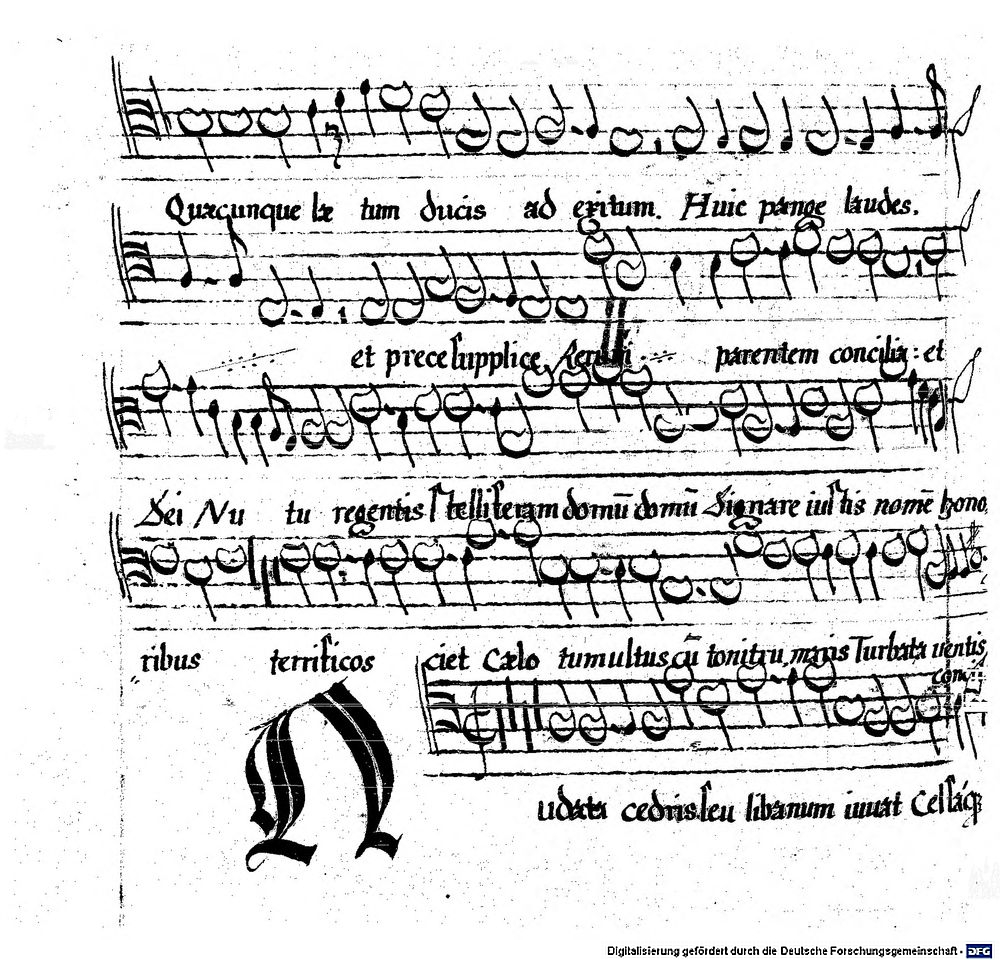 Quæcunque læ tum ducis ad exitum. Huic pange laudes.
et prece supplice Rerum parentem concilia: et
Dei Nu tu regentis stelliferam domū domū Signare iustis nomē hono
ribus terrificos ciet Cælo tumultus cū tonitru maris Turbata uentis
N
udata cedris seu libanum iuuat Celsáq;
Digitalisierung gefördert durch die Deutsche Forschungsgemeinschaft - DFG